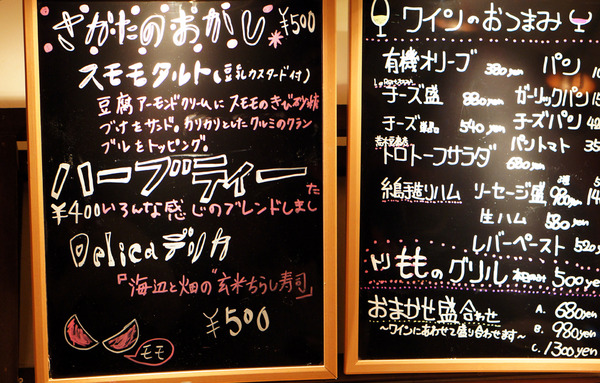 さかたのおかし ¥500
スモモタルト(豆乳カスタード付)
豆腐アーモンドクリームにスモモのきび砂糖
づけをサンド。カリカリとしたクルミのクラン
ブルをトッピング。
ハーブティー
¥400 いろんな感じのブレンドしました
Delica デリカ
『海辺と畑の"玄米ちらし寿司』
¥500
モモ
ワインのおつまみ
有機オリーブ 380yen パン
チーズ盛 880yen ガーリックパン
チーズ単品 540yen チーズパン
トロトーフサラダ 680yen パントマト
糸島手造りハム
ソーセージ盛 980yen
生ハム 580yen
レバーペースト 520
トリもものグリル 500yen
おまかせ盛合わせ
〜ワインにあわせて盛り合わせます〜
A. 680yen
B. 980yen
C. 1300yen